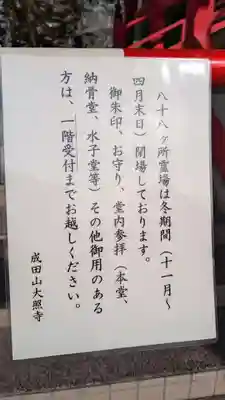 八十八ヶ所霊場は冬期間（十一月～
四月末日）閉場しております。
御朱印、お守り、堂内参拝（本堂、
納骨堂、水子堂等）その他御用のある
方は、一階受付までお越しください。
成田山大照寺